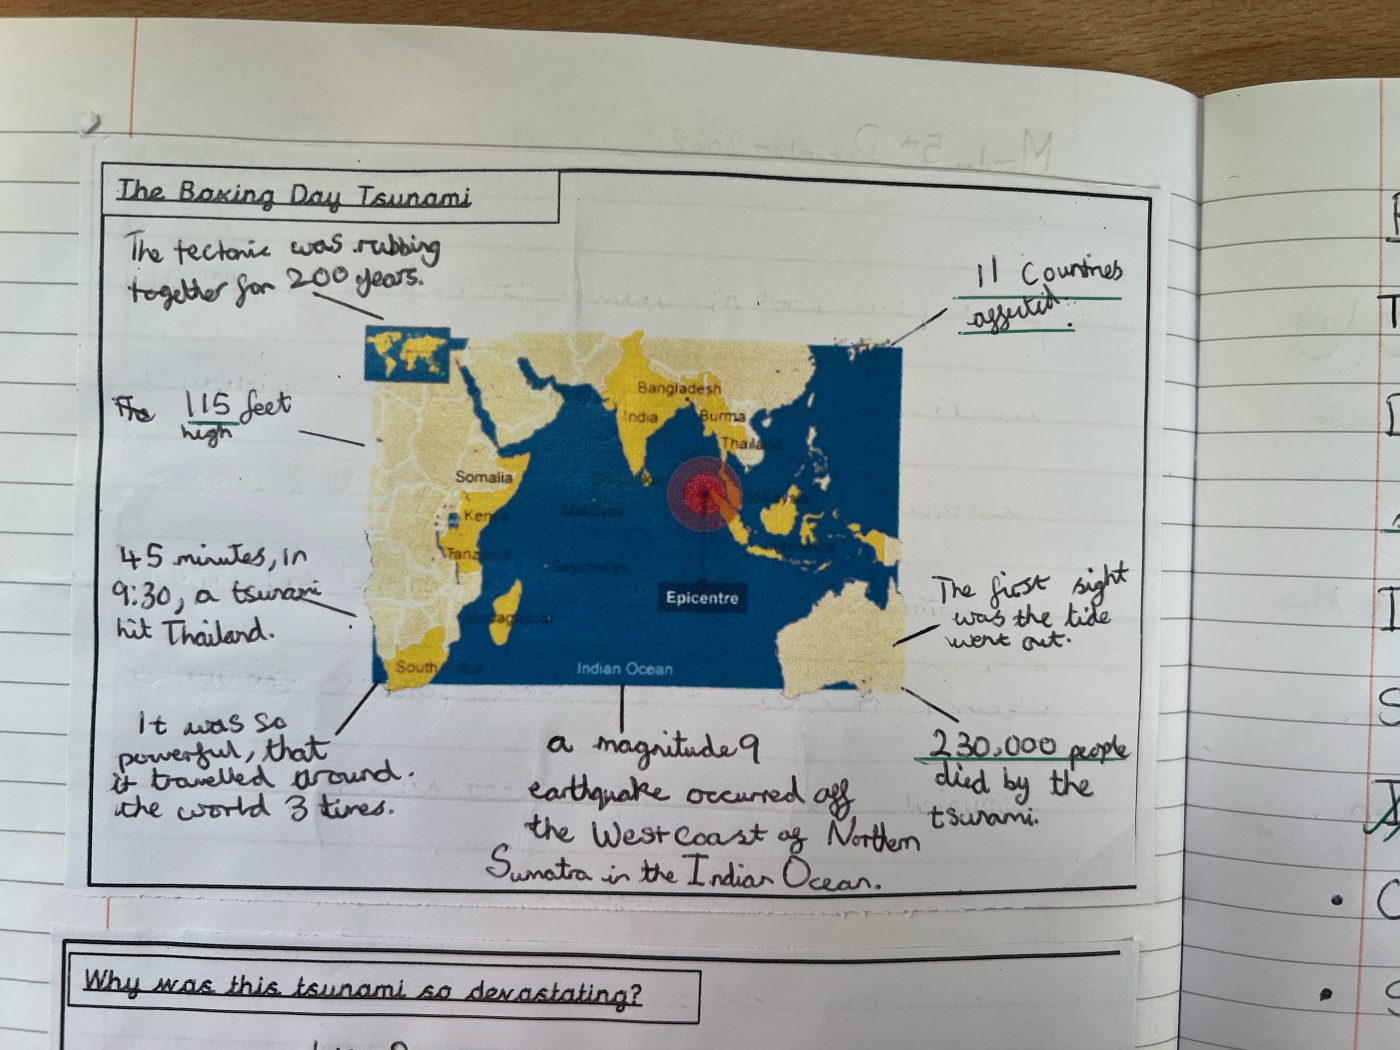 The Boxing Day Tsunami
The tectonic was rubbing
together for 200 years.
11 Countries
affected.
The 115 feet
high
45 minutes, in
9:30, a tsunami
hit Thailand.
It was so
powerful, that
it travelled around.
the world 3 times.
Bangladesh
India
Burma
Thailand
Somalia
Sri Lanka
Kenya
Maldives
Malaysia
Tanzania
Indonesia
Seychelles
Epicentre
Madagascar
South Africa
Indian Ocean
The first sight
was the tide
went out.
a magnitude 9
earthquake occurred off
the West coast of Northern
Sumatra in the Indian Ocean.
230,000 people
died by the
tsunami.
Why was this tsunami so devastating?